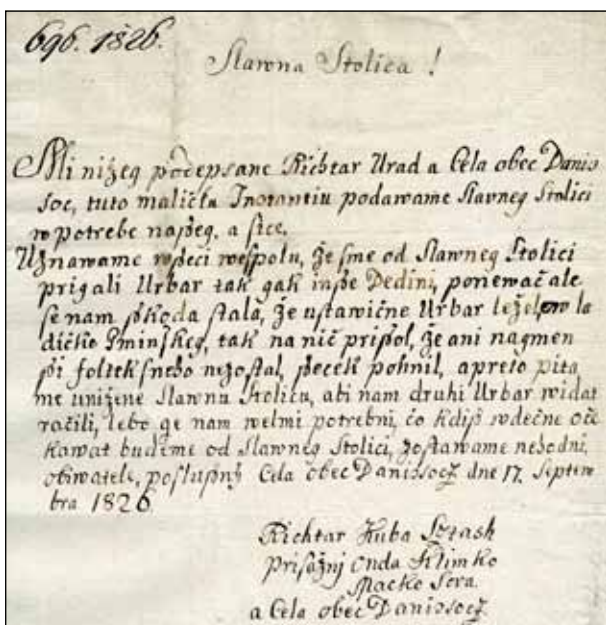 696. 1826.
Slawna Stolica !
Mi nižeg podepsane Richtar Urad a Cela obec Danis
soc, tuto maličku Instantiu podawame Slawneg Stolici
w potrebe naßeg, a sice.
Uznawame wßeci wespolu, že sme od Slawneg Stolici
prigali Urbar tak gak inße Dedini, poniewač ale
se nam sskoda stala, že ustawične Urbar ležel w la
dičke Obecneg, tak na nič prißol, že ani nagmen
ßi foltek s neho nezostal, wßecek pohnil, a preto pita
me unižene Slawnu Stolicu, abi nam druhi Urbar widat
račili, lebo ge nam welmi potrebni, čo kdiß wdečne oče
kawat budeme od Slawneg Stolici, zostawame nehodni,
obiwatele, poslußny Cela obec Danissocz dne 17. Septem
bra 1826
Richtar Kuba
Prisažnj Onda Klimko
Macko Sera
a Cela obec Danissocz